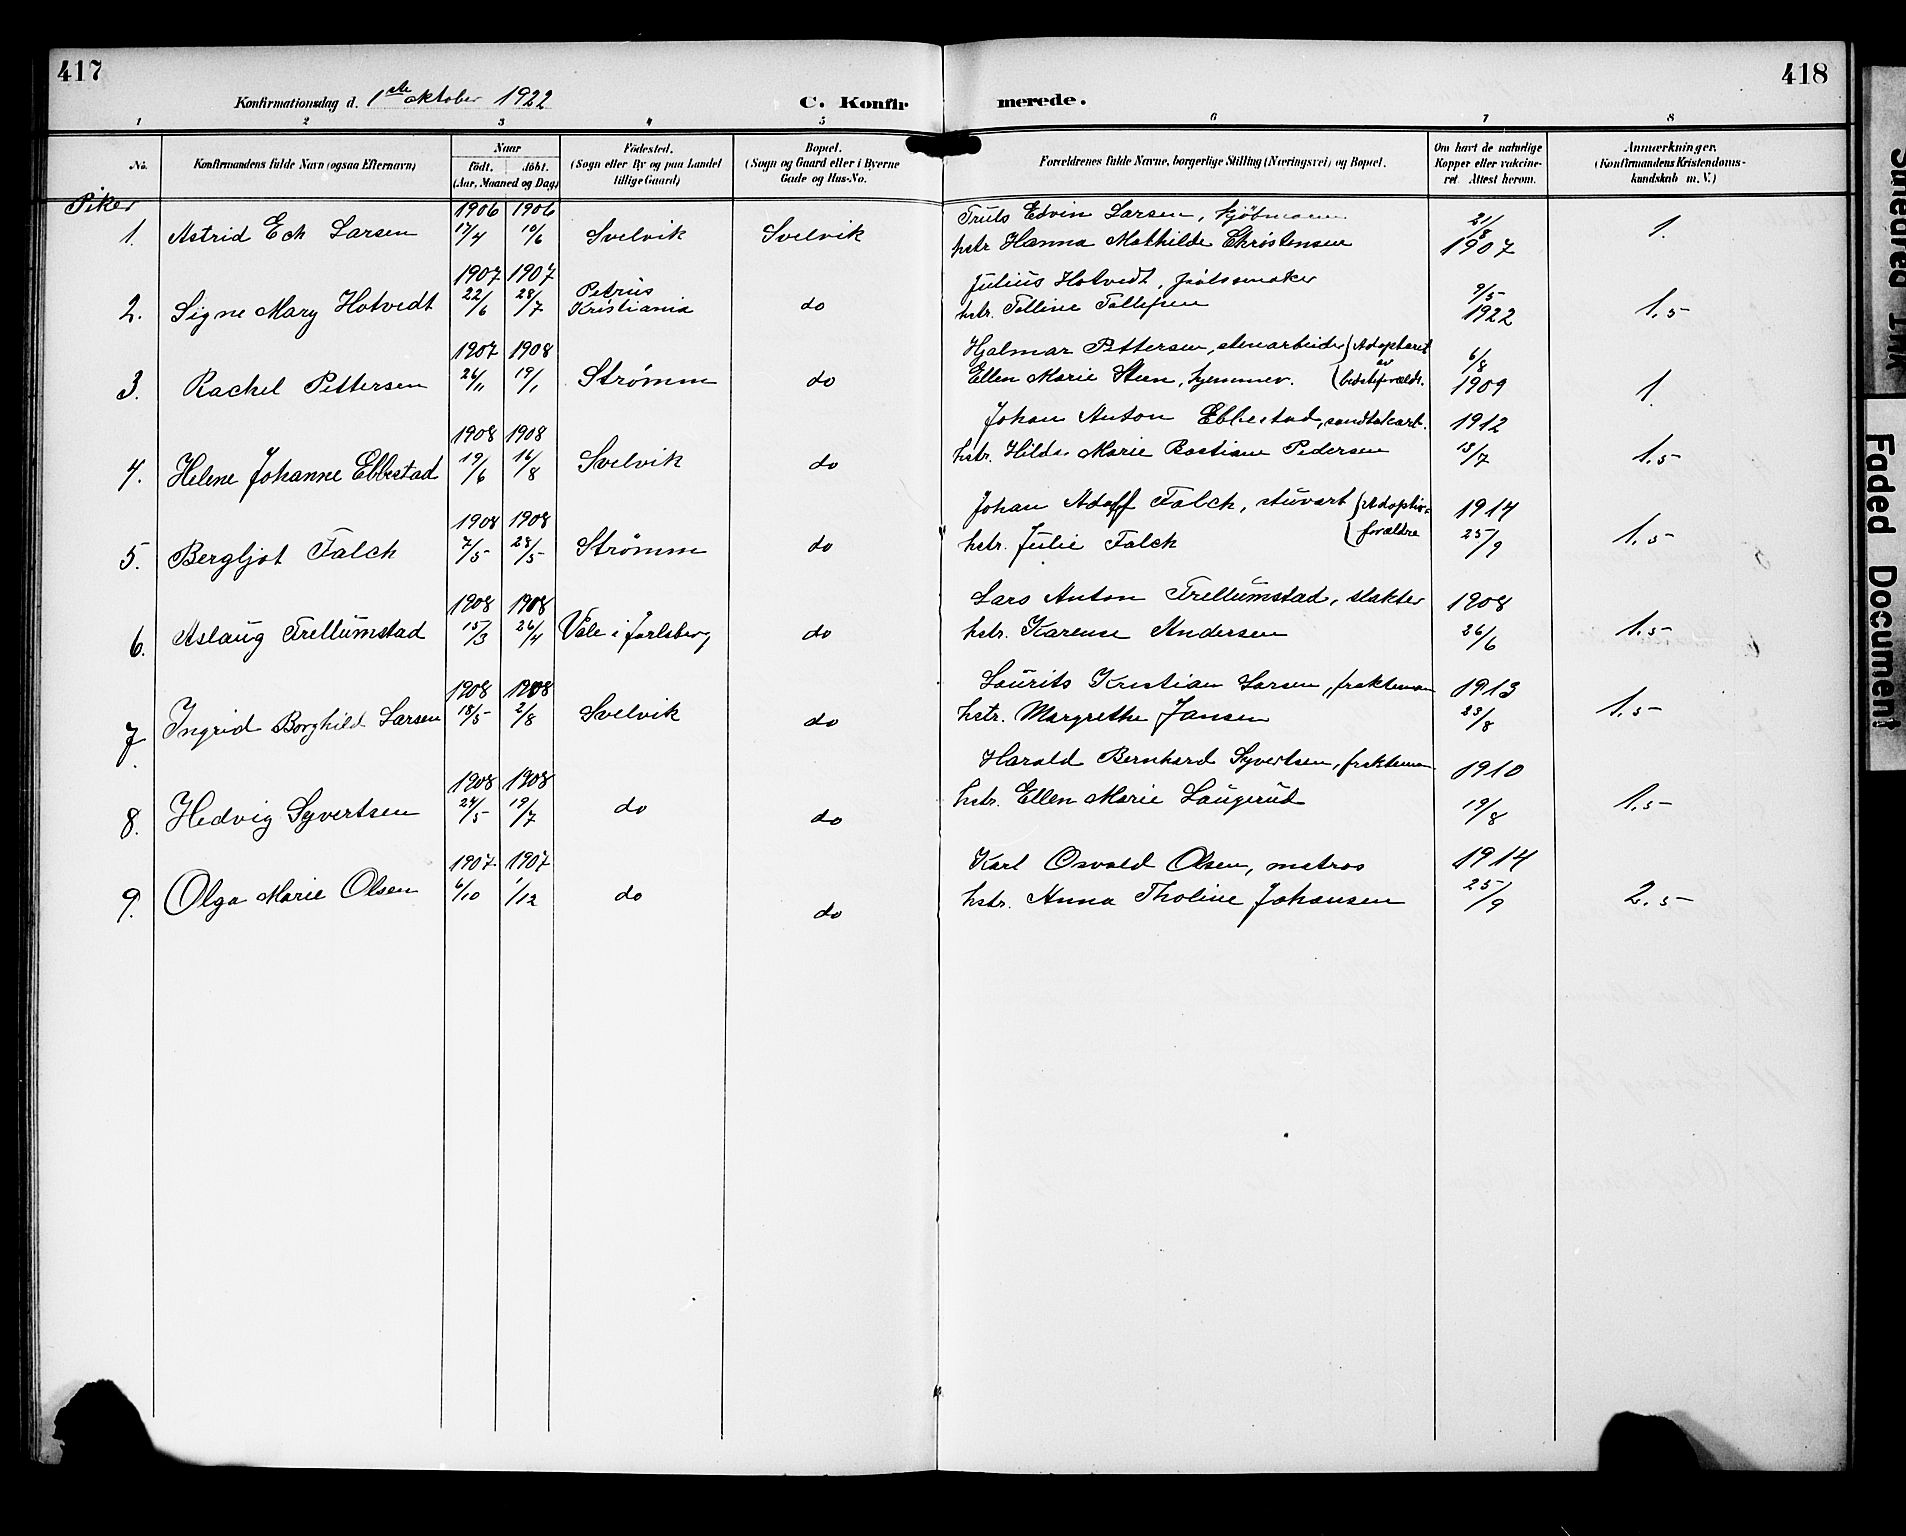 417
418
Konfirmationsdag d. 1ste oktober 1922
C. Konfirmerede.
1 2 3 4 5 6 7 8
No.
Konfirmandens fulde Navn (ogsaa Efternavn)
Naar
født. døbt.
(Aar, Maaned og Dag)
Fødested.
(Sogn eller By og paa Landet
tillige Gaard)
Bopæl.
(Sogn og Gaard eller i Byerne
Gade og Hus-No.
Forældrenes fulde Navne, borgerlige Stilling (Næringsvei) og Bopæl.
Om havt de naturlige
Kopper eller vakcine-
ret Attest herom.
Anmærkninger.
(Konfirmandens Kristendoms-
kundskab m. V.)
Piker
1906 1906 Truls Edvin Larsen, kjøbmann 21/8
1. Astrid Eck Larsen 17/4 10/6 Svelvik Svelvik hstr Hanna Mathilde Christensen 1907 1.
1907 1907 Petrus Julius Hotvedt, 9/5
2. Signe Mary Hotvedt 22/6 28/7 Kristiania do hstr. Tolline Tollefsen 1922 1.5
1907 1908 Hjalmar Pettersen, stenarbeider Adopteret av 6/8
3. Rachel Pettersen 26/11 19/1 Strømm do Ellen Marie Steen, hjemmev. bedsteforældr. 1909 1.
1908 1908 Johan Anton Ebbestad, sandtakarb. 1912
4. Helene Johanne Ebbestad 19/6 16/8 Svelvik do hstr. Hilda Marie Bastiane Pedersen 18/7 1.5
1908 1908 Johan Adolf Falch, stuvert Adoptiv- 1914
5. Bergljot Falch 7/5 28/5 Strømm do hstr. Julie Falch forældre 25/9 1.5
1908 1908 Lars Anton Trellumstad, slakter 1908
6. Aslaug Trellumstad 15/3 26/4 Vale i Jarlsberg do hstr. Karense Andersen 26/6 1.5
1908 1908 Laurits Kristian Larsen, frakteman 1913
7. Ingrid Borghild Larsen 18/5 2/8 Svelvik do hstr. Margrethe Jansen 23/8 1.5
1908 1908 Harald Bernhard Syvertsen, frakteman 1910
8. Hedvig Syvertsen 24/5 19/7 do do hstr. Ellen Marie Laugerud 19/8 1.5
1907 1907 Karl Osvald Olsen, matros 1914
9. Olga Marie Olsen 6/10 1/12 do do hstr. Anna Tholine Johansen 25/9 2.5
Faded Document